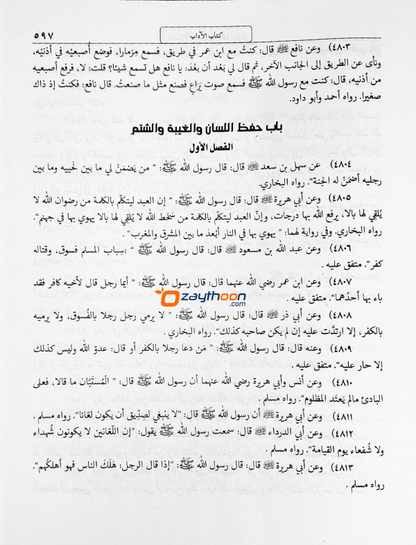 كتاب الآداب
٥٩٧
٤٨٠٣) وعن نافع ﷺ قال: كنتُ مع ابن عمر في طريق، فسمع مِزمارا، فوضع أُصبعيْه في أذنيْه،
وناَى عن الطريق إلى الجانب الآخر، ثم قال لي بعْد أن بعُد: يا نافع هل تسمع شيئا؟ قلت: لا، فرفع أصبعيه
من أذنيه، قال: كنت مع رسول الله ﷺ فسمع صوت يَرَاع فصنع مثل ما صنعتُ. قال نافع: فكنتُ إذ ذاك
صغيرا. رواه أحمد وأبو داود.
باب حفظ اللسان والغيبة والشتم
الفصل الأول
٤٨٠٤) عن سهل بن سعد قال: قال رسول الله ﷺ: " من يَضمَنْ لي ما بين لَحييه وما بين
رجليه أضمَنْ له الجنة". رواه البخاري.
٤٨٠٥) وعن أبي هريرة قال: قال رسول الله ﷺ: " إن العبد ليتكلّم بالكلمة من رضوان الله لا
يُلقِي لها بالا، يرفع الله بها درجات، وإنّ العبد ليتكلّم بالكلمة من سَخَط الله لا يُلقِي لها بالا يهوي بها في جهنم".
رواه البخاري. وفي رواية لهما: " يهوي بها في النار أبْعدَ ما بين المشرق والمغرب".
٤٨٠٦) وعن عبد الله بن مسعود قال: قال رسول الله ﷺ: "سِباب المسلم فسوق، وقتاله
كفر". متفق عليه.
٤٨٠٧) وعن ابن عمر رضي الله عنهما قال: قال رسول الله ﷺ: " أيما رجل قال لأخيه كافر فقد
باء بها أحدُهما". متفق عليه.
zaythoon.com
٤٨٠٨) وعن أبي ذر قال: قال رسول الله ﷺ: " لا يرمي رجل رجلا بالفُسوق، ولا يرميه
بالكفر، إلا ارتدَّت عليه إن لم يكن صاحبه كذلك". رواه البخاري.
٤٨٠٩) وعنه قال: قال رسول الله ﷺ: " مَن دعا رجلا بالكفر أو قال: عدوّ الله وليس كذلك
إلا حار عليه". متفق عليه.
٤٨١٠) وعن أنس وأبي هريرة رضي الله عنهما أن رسول الله ﷺ قال: " المُسْتَبَّان ما قالا، فعلى
البادئ مالم يَعتَد المظلوم". رواه مسلم.
٤٨١١) وعن أبي هريرة أن رسول الله ﷺ قال: "لا ينبغي لصِدّيق أن يكون لعّانا". رواه مسلم.
٤٨١٢) وعن أبي الدرداء قال: سمعت رسول الله ﷺ يقول: "إن اللّعّانين لا يكونون شُهداء
ولا شُفعاء يوم القيامة". رواه مسلم.
٤٨١٣) وعن أبي هريرة قال: قال رسول الله ﷺ: "إذا قال الرجل: هَلَك الناس فهو أهلكُهم".
رواه مسلم.